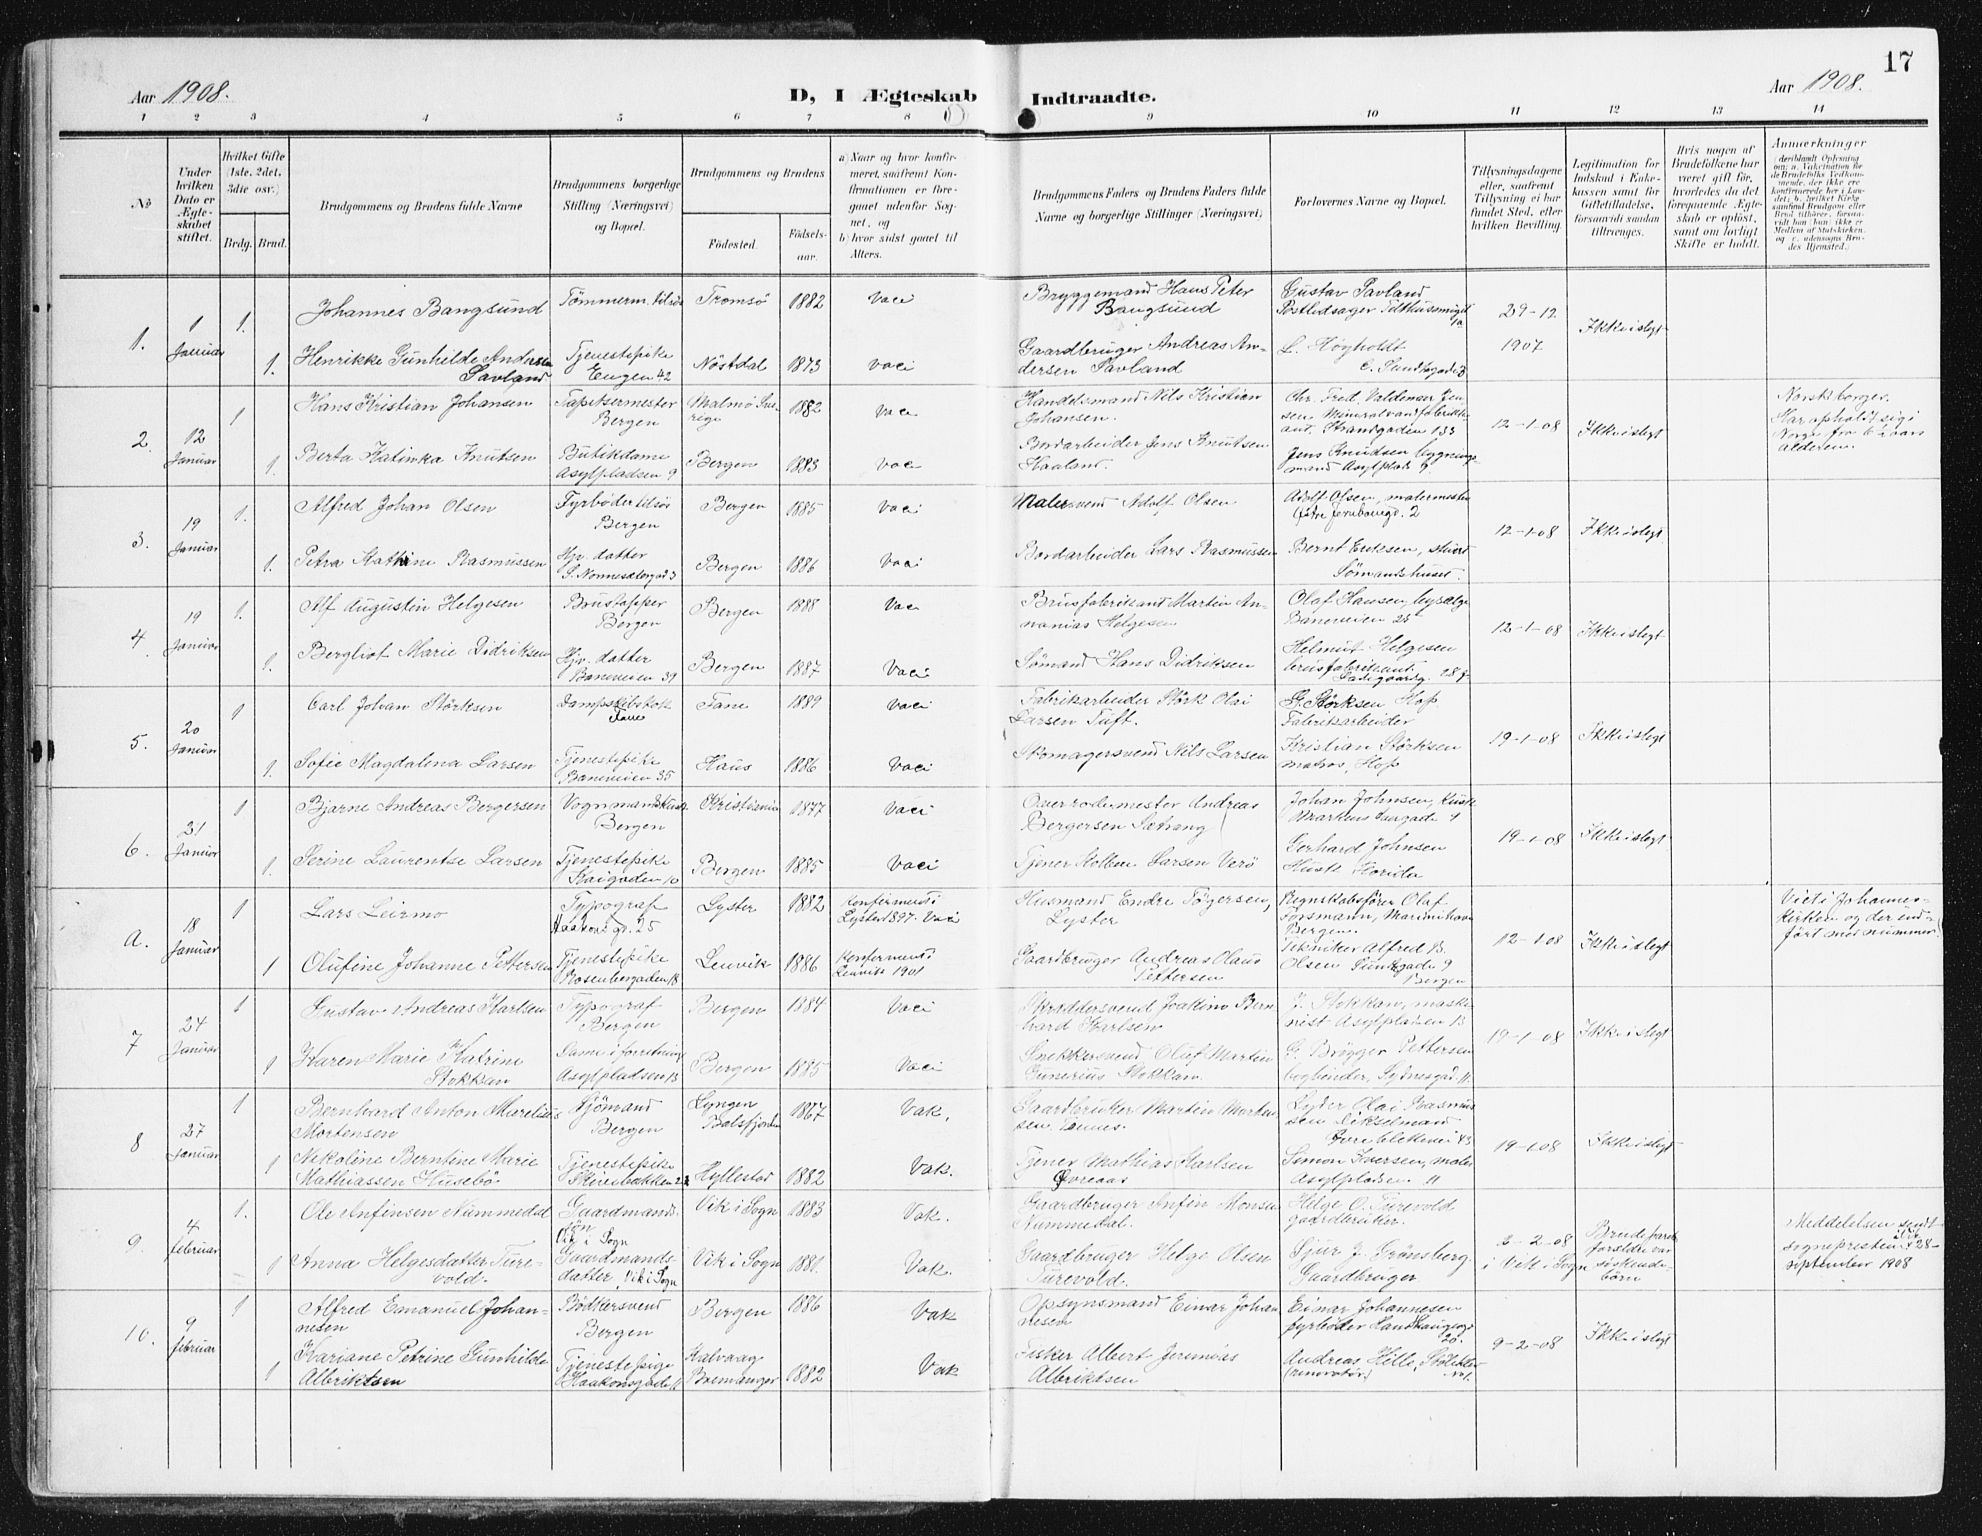 17
Aar 1908.
D, I Ægteskab Indtraadte.
Aar 1908.
1 2 3 4 5 6 7 8 9 10 11 12 13 14
No
Under hvilken Dato er Ægteskabet stiftet.
Hvilket Gifte (1ste, 2det, 3die osv.)
Brdg. Brud.
Brudgommens og Brudens fulde Navne
Brudgommens borgerlige Stilling (Næringsvei) og Bopæl.
Brudgommens og Brudens
Fødested.
Fødselsaar.
a) Naar og hvor konfirmeret, saafremt Konfirmationen er foregaaet udenfor Sognet, og
b) hvor sidst gaaet til Alters.
Brudgommens Faders og Brudens Faders fulde Navne og borgerlige Stillinger (Næringsvei)
Forlovernes Navne og Bopæl.
Tillysningsdagene eller, saafremt Tillysning ei har fundet Sted, efter hvilken Bevilling.
Legitimation for Indskud i Enkekassen samt for Giftetilladelse, forsaavidt saadan tiltrænges.
Hvis nogen af Brudefolkene har været gift før, hvorledes da det foregaaende Ægteskab er opløst, samt om lovligt Skifte er holdt.
Anmærkninger
(deriblandt Oplysning om: a. Vakcination for de Brudefolks Vedkommende, der ikke ere konfirmerede her i Landet; b. hvilket Kirkesamfund Brudgom eller Brud tilhører, forsaavidt han (hun) ikke er Medlem af Statskirken, og c. udensogns Brudes Hjemsted.)
1. 1 Januar 1. Johannes Bangsund Tømmerm. tilsøs Tromsø 1882 Vaci Bryggemand Hans Peter Bangsund Gustav Savland 29-12 1907 Ikke i slegt
1. Henrikke Gunhilde Andersen Savland Tjenestepike Engen 42 Nøstdal 1873 Vaci Gaardbruger Andreas Andersen Savland L. Høyholdt
2 12 Januar 1 Hans Kristian Johansen Tapetsermester Bergen Malmø Sverige 1882 Vaci Handelsmand Nils Kristian Johansen. Chr. Fred. Valdemar Jensen. Mineralvandfabrikant. Strandgaden 133 12-1-08 Ikke i slegt Norsk borger. Har opholdt sig i Norge fra 6 aars alderen.
1. Berta Katinka Knutsen Butikdame Asylpladsen 9 Bergen 1883 Vaci Bordarbeider Jens Knutsen Haaland. Jens Knudsen bygningsmand Asylplads 9.
3. 19 Januar 1. Alfred Johan Olsen Fyrbøder tilsøs Bergen Bergen 1885 Vaci Malersvend Adolf Olsen Adolf Olsen, malermester 12-1-08 Ikke i slegt
1. Petra Kathrine Rasmussen Hjv. datter Bergen 1886 Vaci Bordarbeider Lars Rasmussen Bernt Eriksen, stuert Sømandshuset.
4 19 Januar 1. Alf Augustin Helgesen Brustapper Bergen Bergen 1888 Vaci Brusfabrikant Martin Ananias Helgesen Olaf Hansen, Baneveien 25 12-1-08 Ikke i slegt
1. Bergliot Marie Didriksen Hjv. datter Baneveien 39 Bergen 1887 Vaci Sømand Hans Didriksen Helmut Helgesen brusfabrikant
5. 20 Januar 1 Carl Johan Størksen Fane Fane 1889 Vaci Fabrikarbeider Størk Olai Larsen Tuft. Størksen Hop Fabrikarbeider 19-1-08 Ikke i slegt
1. Sofie Magdalena Larsen Tjenestepike Baneveien 35 Haus 1886 Vaci Skomagersvend Nils Larsen Kristian Størksen matros, Hop
6. 21 Januar 1 Bjarne Andreas Bergersen Vognmand Bergen Kristiania 1877 Vaci Overrodemester Andreas Bergersen Sætrang Johan Johnsen, 19-1-08 Ikke i slegt
1. Serine Laurentse Larsen Tjenestepike Kaigaden 10 Bergen 1885 Vaci Tjener Kolben Larsen Verø Gerhard Johnsen
a. 18 Januar 1 Lars Leirmo Typograf Haakonsgd. 25 Lyster 1882 Konfirmert i Lyster 1897. Vaci Husmand Endre Tøgersen, Lyster Regnskabsfører Olaf Forsmann, Bergen. 12-1-08 Ikke i slegt Viet i Johanneskirken og der indført med nummer.
1 Olufine Johanne Pettersen Tjenestepike Rosenberggaden 18 Lenvik 1886 Konfirmert i Lenvik 1901 Gaardbruger Andreas Olaus Pettersen Tekniker Alfred B. Olsen 9 Bergen
7 24 Januar 1 Gustav Andreas Karlsen Typograf Bergen Bergen 1884 Vaci Skræddersvend Joakim Bernhard Karlsen J. Stokkan, maskinist Asylpladsen 13 19-1-08 Ikke i slegt
1 Karen Marie Katrine Stokkan Dame i forretning Asylpladsen 13 Bergen 1885 Vaci Snekkersvend Oluf Martin Gunerius Stokkan. G. Brügger Pettersen bogbinder, Sydnesgd. 11.
8 27 Januar 1 Bernhard Anton Marelius Mortensen Sjømand Bergen Lyngen Balsfjorden 1867 Vak. Gaardbruker Martin Mortensen. Lyder Olai Rasmussen 19-1-08 Ikke i slegt
1 Nikoline Berntine Marie Mathiassen Husebø Tjenestepike Hyllestad 1882 Vak. Tjener Mathias Karlsen Simon Iversen, maler Asylpladsen 11
9. 4 februar 1. Ole Anfinsen Nummedal Gaardmandssøn Vik i Sogn Vik i Sogn 1883 Vak. Gaardbruger Anfin Monsen Nummedal. Helge O. Turevold gaardbruker. 2-2-08 i Vik i Sogn Brudeparets forældre var søskendebørn Meddelelsen sendt sognepresten i Vik 28 september 1908
1 Anna Helgesdatter Turevold. Gaardmandsdatter, Vik i Sogn Vik i Sogn 1881. Vak. Gaardbruger Helge Olsen Turevold. Sjur J. Grønsberg Gaardbruger
10. 9 februar 1 Alfred Emanuel Johannesen Bødkersvend Bergen Bergen 1886 Vak Opsynsmand Einar Johannesen Einar Johannesen fyrbøder 20. 9-2-08 Ikke i slegt
1 Kariane Petrine Gunhilde Albriktsen Tjenestepige Haakonsgaden 11 Kalvaag Bremanger 1882 Vak Fisker Albert Jeremias Albriktsen Andreas Hille, (renovatør)